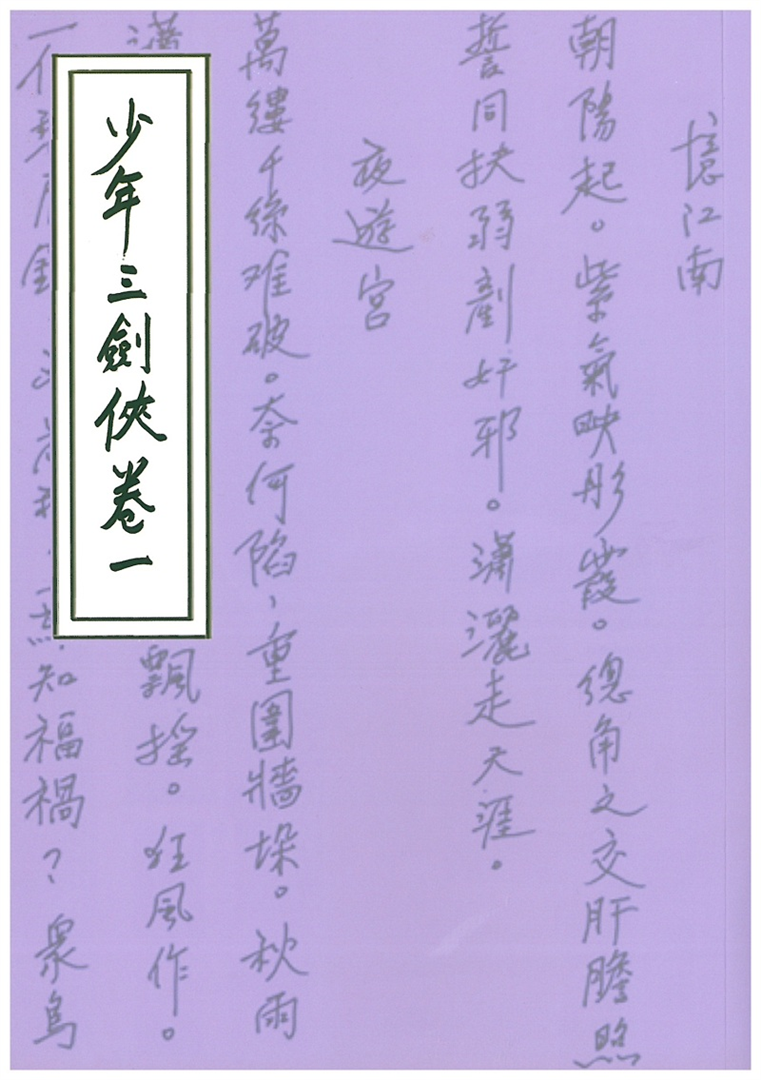 憶江南
朝陽起。紫氣映彤霞。總角之交肝膽照
誓同扶弱剷奸邪。瀟灑走天涯。
夜遊宮
萬縷千絲难破。奈何陷,重圍牆垛。秋雨
飄搖。狂風作。
知福禍?眾鳥
少年三劍俠卷一